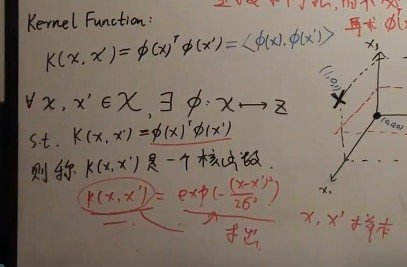 Kernel Function:
K(x, x') = φ(x)ᵀ φ(x') = ⟨φ(x), φ(x')⟩
∀ x, x' ∈ X, ∃ φ: X ↦ Z
s.t. K(x, x') = φ(x)ᵀ φ(x')
则称 K(x, x') 是一个核函数.
K(x, x') = exp(-(x-x')²/2σ²)
x, x'
再求 φ(
x₃
(1,0,1)
(0,0,0)
x₁